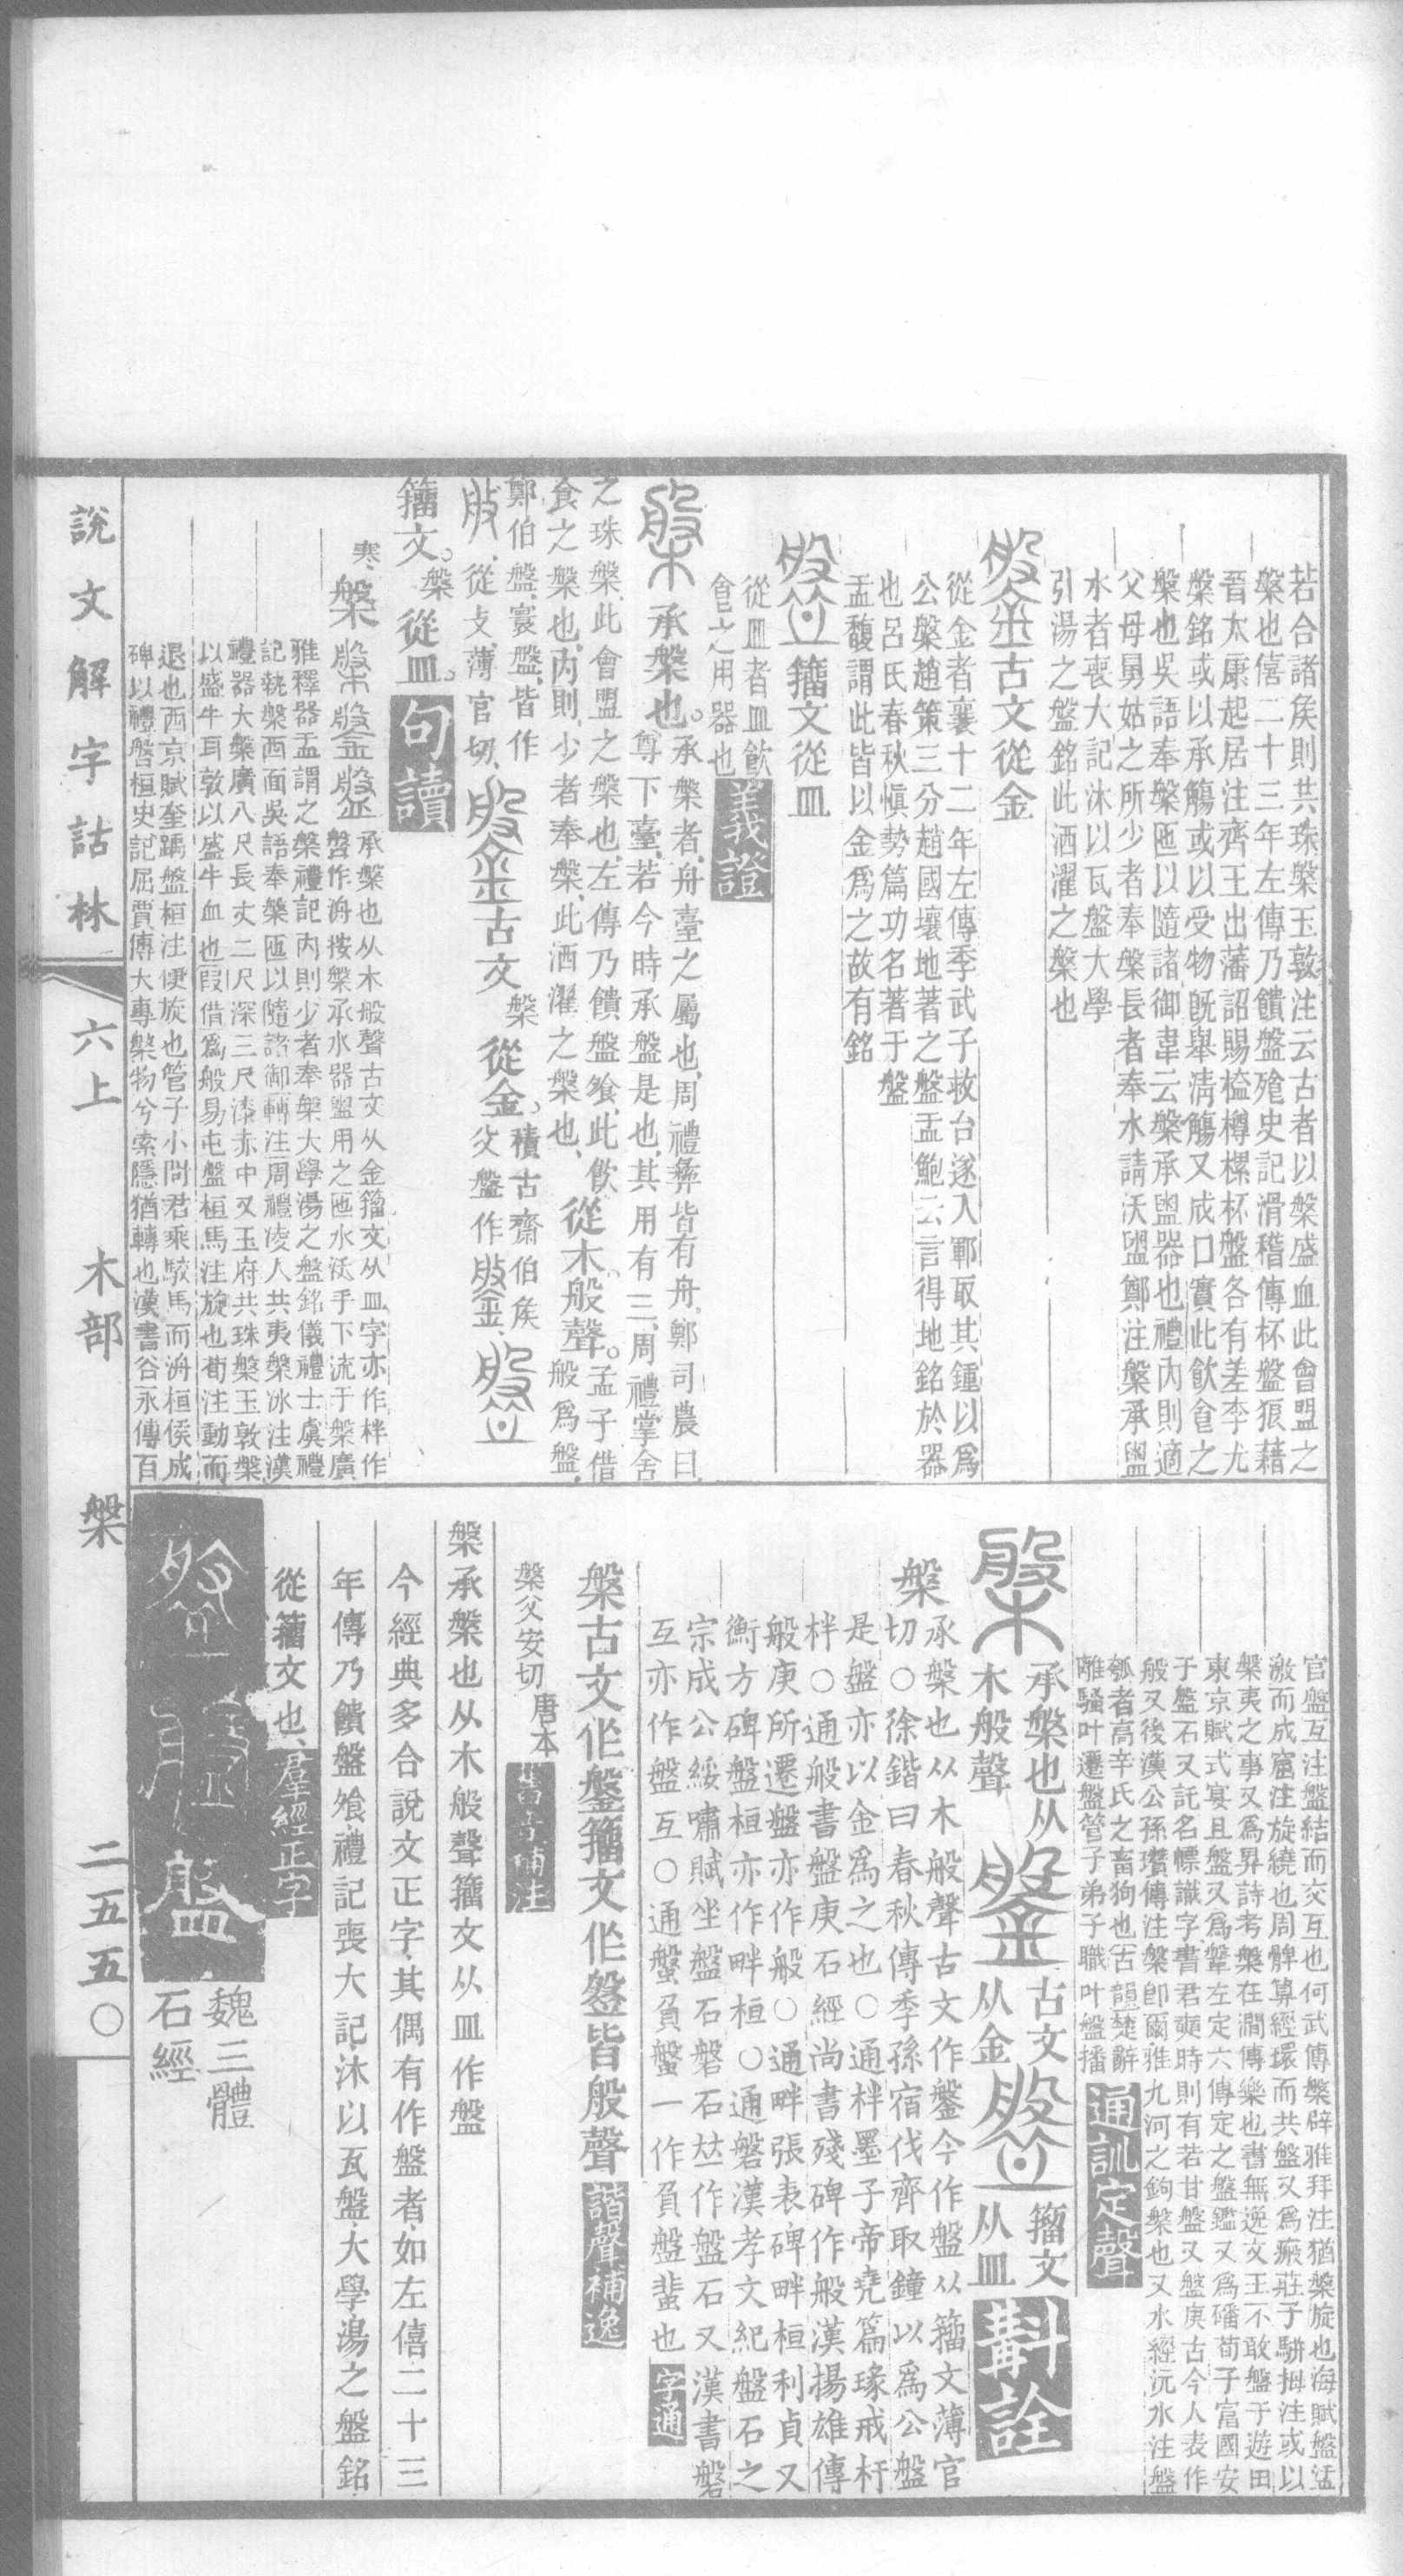 若合諸矦則共珠槃玉敦注云古者以槃盛血此會盟之
槃也僖二十三年左傳乃饋盤飱史記滑稽傳杯盤狼藉
晉太康起居注齊王出藩詔賜榼樽樏杯盤各有差李尤
槃銘或以承觴或以受物旣舉淸觴又成口實此飮食之
槃也吳語奉槃匜以隨諸御韋云槃承盥器也禮內則適
父母舅姑之所少者奉槃長者奉水請沃盥鄭注槃承盥
水者喪大記沐以瓦盤大學
引湯之盤銘此洒濯之槃也
鎜古文從金
從金者襄十二年左傳季武子救台遂入鄆取其鍾以爲
公槃趙策三分趙國壤地著之盤盂鮑云言得地銘於器
也呂氏春秋愼勢篇功名著于盤
盂馥謂此皆以金爲之故有銘
盤籒文從皿
從皿者皿飮
食之用器也義證
槃承槃也。承槃者、舟臺之屬也、周禮彝皆有舟、鄭司農曰、
尊下臺、若今時承盤是也、其用有三、周禮掌舍
之珠槃、此會盟之槃也、左傳乃饋盤飱、此飮
食之槃也、內則、少者奉槃、此洒濯之槃也、從木。般聲。孟子借
般爲盤、
鄭伯盤、寰盤、皆作
從攴、薄官切、鎜古文槃從金。積古齋伯矦
父盤作
籒文。槃從皿。句讀
寒、槃 承槃也从木般聲古文从金籒文从皿字亦作柈作
磐作洀按槃承水器盥用之匜水沃手下流于槃廣
雅釋器盂謂之槃禮記內則少者奉槃大學湯之盤銘儀禮士虞禮
記執槃西面吳語奉槃匜以隨諸御轉注周禮凌人共夷槃冰注漢
禮器大槃廣八尺長丈二尺深三尺漆赤中又玉府共珠槃玉敦槃
以盛牛耳敦以盛牛血也叚借爲般易屯盤桓馬注旋也荀注動而
退也西京賦奎踽盤桓注便旋也管子小問君乘駮馬而洀桓侯成
碑以禮磐桓史記屈賈傳大專槃物兮索隱猶轉也漢書谷永傳百
官盤互注盤結而交互也何武傳槃辟雅拜注猶槃旋也海賦盤猛
激而成窟注旋繞也周髀算經環而共盤又爲瘢莊子駢拇注或以
槃夷之事又爲昪詩考槃在澗傳樂也書無逸文王不敢盤于遊田
東京賦式宴且盤又爲鞶左定六傳定之盤鑑又爲磻荀子富國安
于盤石又託名幖識字書君奭時則有若甘盤又盤庚古今人表作
般又後漢公孫瓚傳注槃卽爾雅九河之鉤槃也又水經沅水注盤
瓠者高辛氏之畜狗也古韻楚辭
離騷叶遷盤管子弟子職叶盤播通訓定聲
槃承槃也从木般聲 鎜古文从金 盤籒文从皿 斠詮
槃 承槃也从木般聲古文作鎜今作盤从籒文薄官
切○徐鍇曰春秋傳季孫宿伐齊取鐘以爲公盤
是盤亦以金爲之也○通柈墨子帝堯篇瑑戒杅
柈○通般書盤庚石經尚書殘碑作般漢揚雄傳
般庚所遷盤亦作般○通畔張表碑畔桓利貞又
衡方碑盤桓亦作畔桓○通磐漢孝文紀盤石之
宗成公綏嘯賦坐盤石磐石竝作盤石又漢書磐
互亦作盤互○通蟹負蟹一作負盤蜚也字通
槃古文作鎜籒文作盤皆般聲諧聲補逸
槃父安切唐本
槃承槃也从木般聲籒文从皿作盤
今經典多合說文正字、其偶有作盤者、如左僖二十三
年傳乃饋盤飱、禮記喪大記、沐以瓦盤、大學、湯之盤銘、
從籒文也、羣經正字
盤
魏三體
石經
說文解字詁林
六上 木部 槃 二五五○